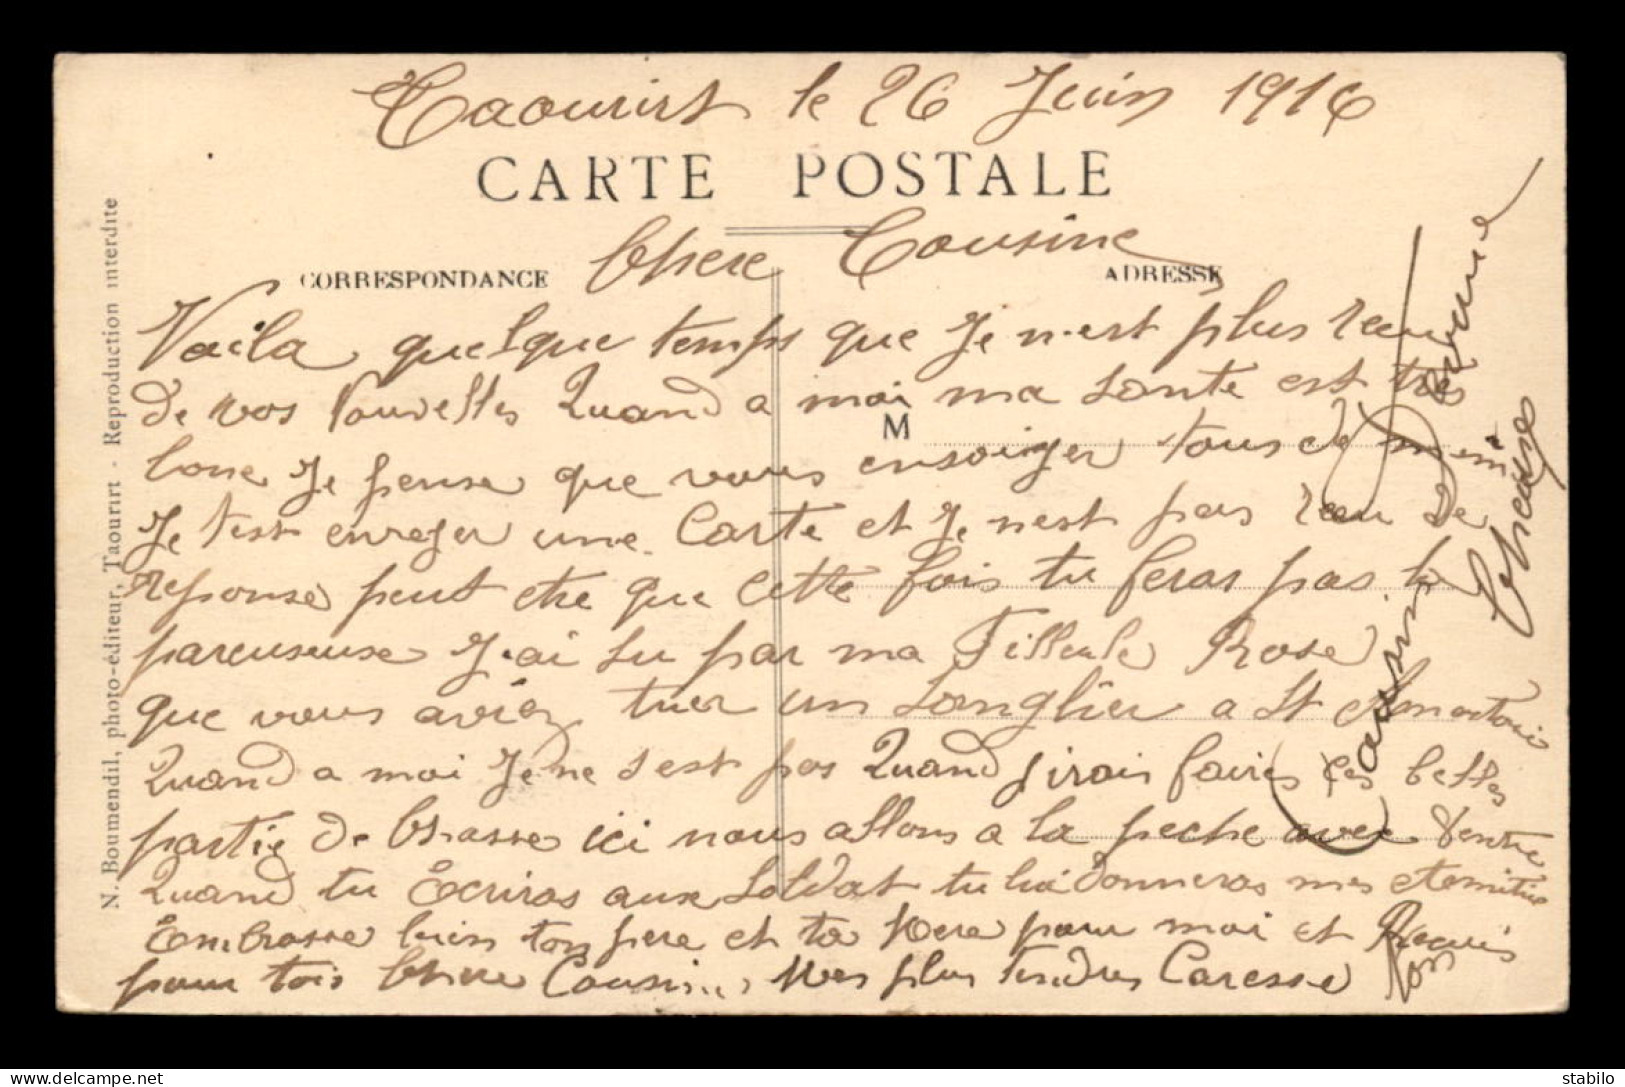 Taourirt le 26 Juin 1914
CARTE POSTALE
CORRESPONDANCE
ADRESSE
Chere Cousine
Voila quelque temps que Je n'est plus recu
de vos Nouvelles Quand a moi ma Sante est tres
bone Je pense que vous en soiyer tous de meme
M
Je t'est envoyer une Carte et Je n'est pas recu de
reponse peut etre que cette fois tu feras pas ta
pareuseuse J'ai su par ma Filleule Rose
que vous aviez tuer un Sanglier a St
Quand a moi Je ne s'est pas Quand J'irais faires ces belles
partie de Chasse ici nous allons a la peche avec
Quand tu Ecriras aux Soldat tu lui donneras mes
Embrasse bien ton pere et ta Mere pour moi et Recois
pour tois Chere Cousine, Mes plus tendres Caresse
Ton
Cousin
N. Boumendil, photo-éditeur, Taourirt - Reproduction interdite
stabilo